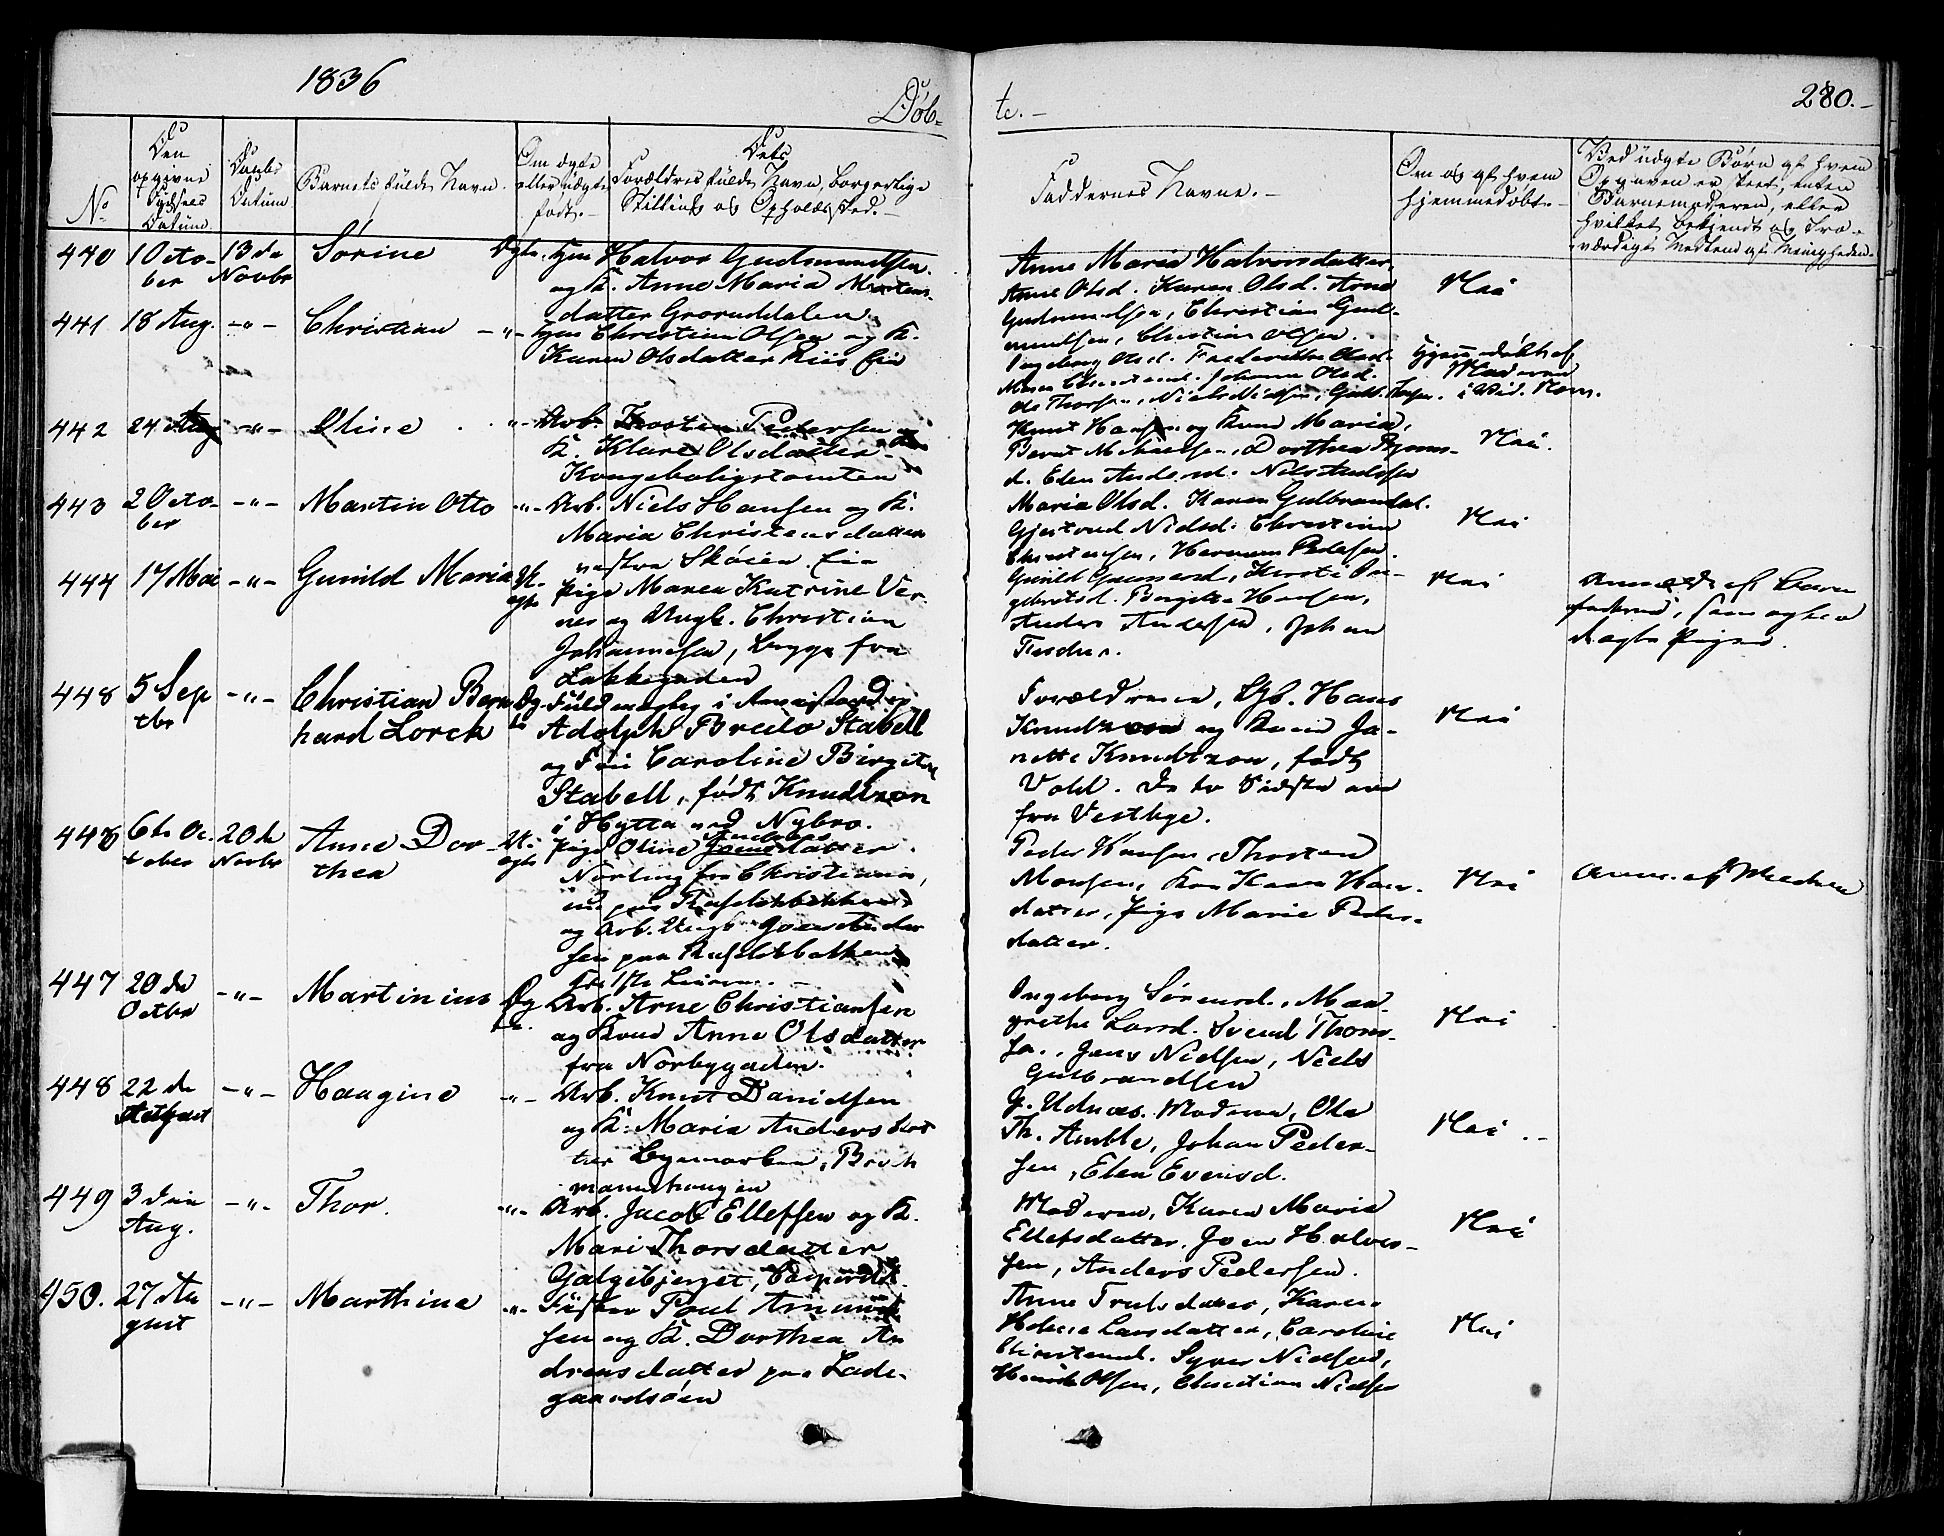 1836
Døb-
te.-
280.-
No
Den opgivne Fødsels Datum.
Daabs Datum
Barnets fulde Navn.
Om ægte eller uægte født.-
Dets Forældres fulde Navn, borgerlige Stilling og Opholdssted.-
Faddernes Navne.-
Om og af hvem hjemmedøbt.-
Ved uægte Børn af hvem Opgaven er skeet, enten Barnemoderen, eller hvilket bekjendt og Troværdigt Medlem af Menigheden.
440
1 Octo-
ber
13de
Novbr
Sørine
Ægte.
Halvor Gudmundsen
og K. Anne Maria Mortens-
datter Groruddalen.
Anne Maria Halvorsdatter,
Anne Olsd. Karen Olsd. Arne
Gudmundsen, Christian Gud-
mundsen, Christian Olsen.
Nei
441
18 Aug.
-"-
Christian
-"-
Christian Olsen og K.
Karen Olsdatter Riis Eie
Ingeborg Olsd. Frederikke Olsd.
Johanne Olsd.
Ole Thorsen, Niels Nielsen, Guld.
442
24 Aug
-"-
Oline
"-
Arb. Thosten Pedersen og
K. Klare Olsdatter
Kongeboligtomten
Knut Hansen og Kone Maria,
Dorthea Bjørns-
d. Elen Andersd. Nils
Nei.
443
2 Octo-
ber
-"-
Martin Otto
-"-
Arb. Niels Hansen og K.
Maria Christensdatter
vestre Skøien Eie
Maria Olsd. Karen Gulbrandsd.
Gjertrud Nielsd. Christian
Christensen, Herman Pedersen.
Nei
444
17 Mai
-"-
Gunild Maria
U-
ægte
Pige Maren Katrine Ver-
nes og Ungk. Christian
Johannesen, begge fra
Lakkegaden
Gunild Gunnersd., Kirsti In-
gebretsd. Birgitte Hansen,
Anders Andersen, Johan
Fischer.
Nei
Anmeldt af Barne-
faderen, som ogsaa
Pigen.
448
5 Sep
tbr
-"-
Christian Bern
hard Lorck
Æg
te
Fuldmægtig i
Adolph Bredo Stabell
og Frue Caroline Birgitte
Stabell, født Knudtzon
i Hytta ved Nybro.
Forældrene, Hans
Knudtzon og Kone Ja-
nette Knudtzon, født
Vold. De to Sidste ere
fra Vestbye.
Nei
446
6te Oc
tober
20de
Novbr
Anne Dor-
thea
U-
ægte
Pige Oline Andreas
datter.
Norling fra Christiania,
nu paa
og Arb. Ungk. Ander
sen paa
Peder Hansen, Thosten
Monsen, Kone Karen Hans-
datter, Pige Marie Peders-
datter.
Nei
Anm. af Moderen
447
20de
Octbr
-"-
Martinius
Æg
te.
Arb. Arne Christiansen
og Kone Anne Olsdatter
fra Norbygaden.
Ingeborg Sørensd., Mar-
grethe Larsd. Svend Thom-
sen, Jens Nielsen, Niels
Gulbrandsen
Nei
448
22de
August
-"-
Haagine
-"-
Arb. Knut Danielsen
og K. Maria Andersdat
ter Bymarken, Broch
mannshaugen
Moderen, Ole
Th. Amble, Johan Peder-
sen, Elen Evensd.
Nei.-
449
3die
Aug.
-"-
Thor.
-"-
Arb. Jacob Ellefsen og K.
Mari Thorsdatter
Galgebjerget,
Moderen, Karen Maria
Ellefsdatter, Joen Halvor-
sen, Anders Pedersen.
Nei
450.
27 Au
gust
-"-
Marthine
"-
Fisker Poul Amund
sen og K. Dorthea An
dreasdatter paa Lade-
gaardsøen
Anne Trulsdatter, Karen
Helene Larsdatter, Caroline
Christensd. Syver Nielsen,
Henrik Olsen, Christian Nielsen
Nei